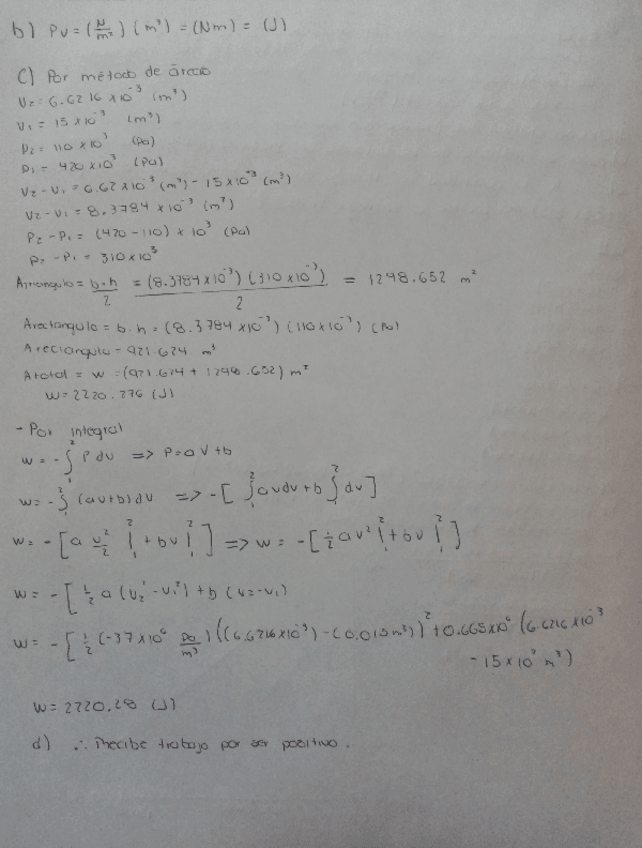 b) PV = (N/m²) (m³) = (Nm) = (J)
C) Por método de áreas
V₂ = 6.6216 x10⁻³ (m³)
V₁ = 15 x10⁻³ (m³)
P₂ = 110 x10³ (Pa)
P₁ = 420 x10³ (Pa)
V₂ - V₁ = 6.62 x10⁻³ (m³) - 15 x10⁻³ (m³)
V₂ - V₁ = 8.3784 x10⁻³ (m³)
P₂ - P₁ = (420 - 110) x 10³ (Pa)
P₂ - P₁ = 310 x10³
Atriangulo = b·h/2 = (8.3784 x10⁻³) (310 x10⁻³)/2 = 1298.652 m²
Arectangulo = b·h = (8.3784 x10⁻³) (110 x10⁻³) (Pa)
Arectangulo = 921.624 m³
Atotal = W = (921.624 + 1298.652) m²
W = 2220.276 (J)
- Por integral
W = -∫₁² P dv => P = aV + b
W = -∫₁² (aV + b) dv => -[∫₁² av dv + b ∫₁² dv]
W = -[a v²/2 |₁² + bv |₁²] => W = -[½ av² |₁² + bv |₁²]
W = -[½ a (V₂² - V₁²) + b (V₂ - V₁)
W = -[½ (-37 x10⁶ Pa/m³) ((6.6216 x10⁻³) - (0.015 m³))² + 0.665 x10⁶ (6.6216 x10⁻³
- 15 x10³ m³)
W = 2220.28 (J)
d) ∴ Recibe trabajo por ser positivo.